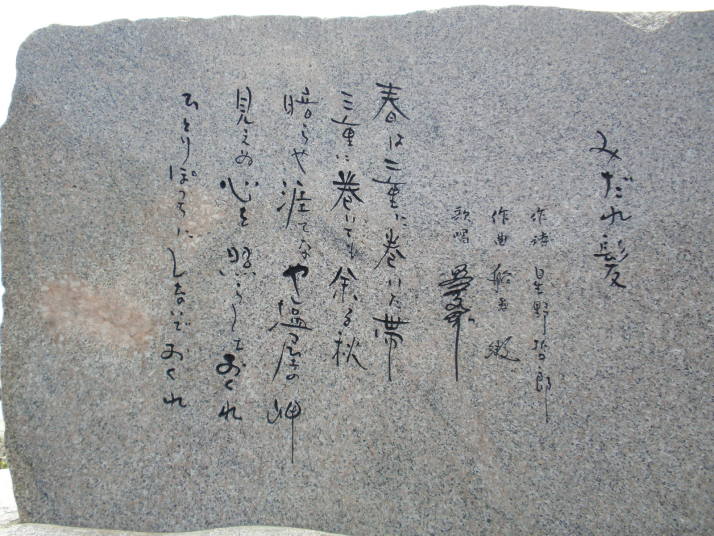 みだれ髪
作詩 星野哲郎
作曲 船村徹
歌唱
春は二重に巻いた帯
三重に巻いても余る秋
暗らや涯てなや塩屋の岬
見えぬ心を照らしておくれ
ひとりぽっちにしないでおくれ